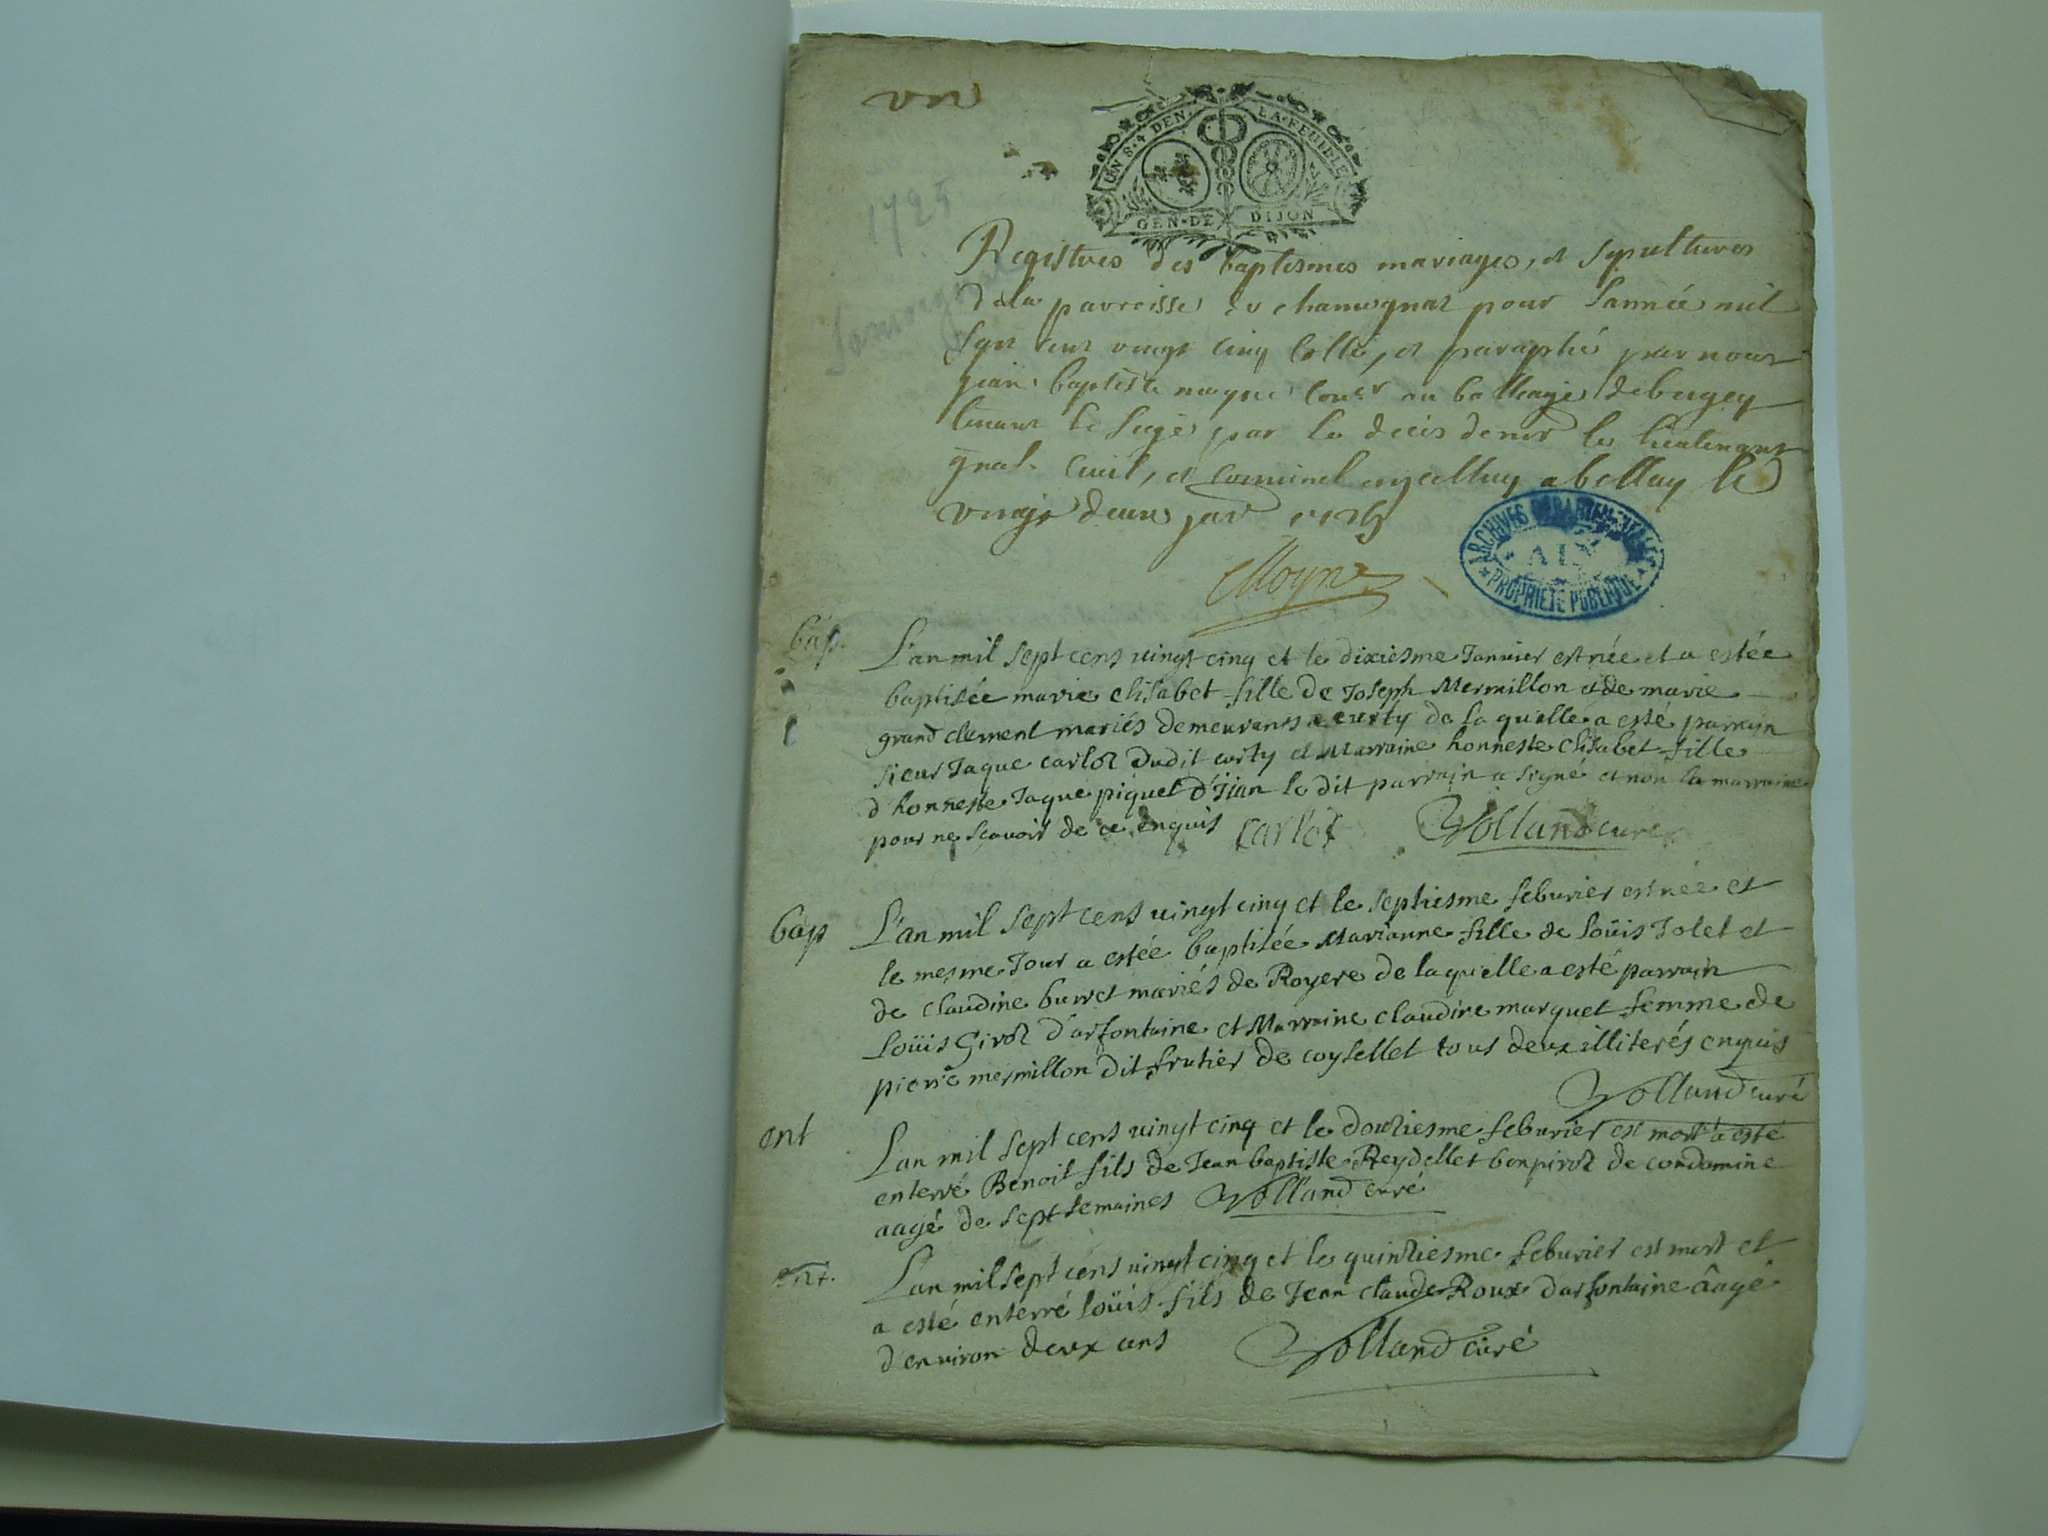 vn
UN S. 4 DEN. LA FEUILLE
GEN. DE DIJON
1725
Registres des baptesmes mariages, et sepultures
de la parroisse de chamognat pour lannée mil
sept cent vingt cinq cotté, et paraphé par nous
jean baptiste moyne conser au balliage de bugey
tenant le siege par le decés de mr le lieutenant
gnal. civil, et criminel en icelluy a bellay le
vingt deux janr 1725
Moyne
ARCHIVES DEPARTEMENTALES
AIN
PROPRIETE PUBLIQUE
bap.
L'an mil sept cens vingt cinq et le dixiesme Janvier est née et a estée
baptisée marie elisabet fille de Joseph Mermillon et de marie
grand clement mariés demeurants a curty de la quelle a esté parrain
sieur Jaque carlot dudit curty et Marraine honneste elisabet fille
d'honneste Jaque piquet d'jian le dit parrain a signé et non la marraine
pour ne scavoir de ce enquis carlot Volland curé
bap
L'an mil sept cens vingt cinq et le septiesme feburier est née et
le mesme Jour a estée baptisée Marianne fille de loüis Jolet et
de claudine burret mariés de Royere de laquelle a esté parrain
Loüis Girot d'arfontaine et Marraine claudine marquet femme de
pierre mermillon dit frutier de coysellet tous deux illiterés enquis
Volland curé
ent
L'an mil sept cens vingt cinq et le douziesme feburier est mort a esté
enterré Benoit fils de Jean baptiste Reydellet bonpirot de condamine
aagé de sept semaines Volland curé
ent.
L'an mil sept cens vingt cinq et le quinziesme feburier est mort et
a esté enterré loüis fils de Jean claude Roux d'arfontaine âagé
d'environ deux ans Volland curé